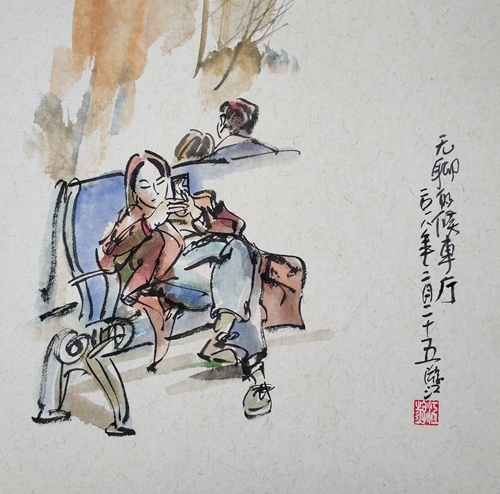 无聊的候車厅
二〇一八年二月二十五 臨江